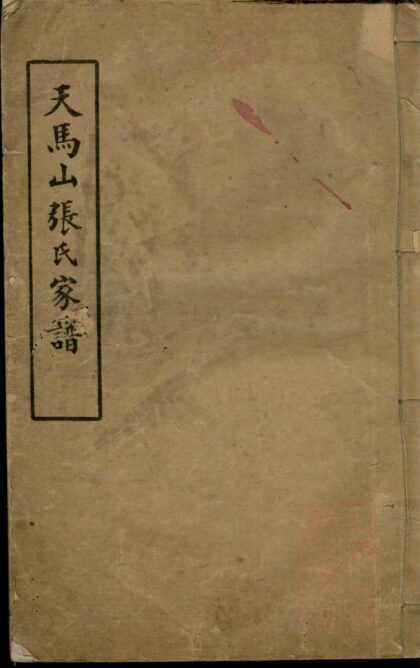 天馬山張氏家譜